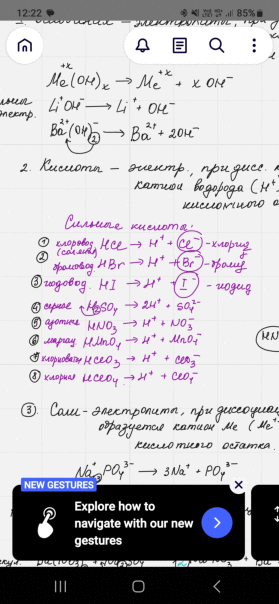 12:22
85%
Me(OH)x → Me+x + x OH⁻
Li⁺OH⁻ → Li⁺ + OH⁻
электр.
Ba²⁺(OH)⁻₂ → Ba²⁺ + 2OH⁻
2. Кислоты - электр., при дисс.
катион водорода (H⁺
кислотного о
Сильные кислоты:
① хлоровод. HCl → H⁺ + Cl⁻ - хлорид
(соляная)
② бромовод. HBr → H⁺ + Br⁻ - бромид
③ иодовод. HI → H⁺ + I⁻ - иодид
④ серная H₂SO₄ → 2H⁺ + SO₄²⁻
⑤ азотная HNO₃ → H⁺ + NO₃⁻
⑥ марганц. HMnO₄ → H⁺ + MnO₄⁻
хлорноват. HClO₃ → H⁺ + ClO₃⁻
⑧ хлорная HClO₄ → H⁺ + ClO₄⁻
③. Соли - электролиты, при диссоциац
образуется катион Me (Me⁺
кислотного остатка.
Na⁺₃PO₄³⁻ → 3Na⁺ + PO₄³⁻
NEW GESTURES
Explore how to
navigate with our new
gestures